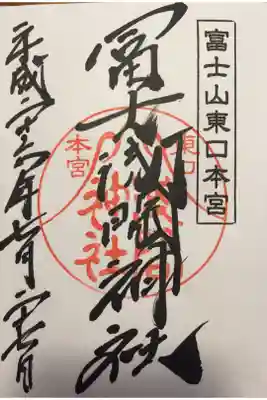 富士山東口本宮
冨士浅間神社
東口
本宮
神社
平成二十六年七月二十七日